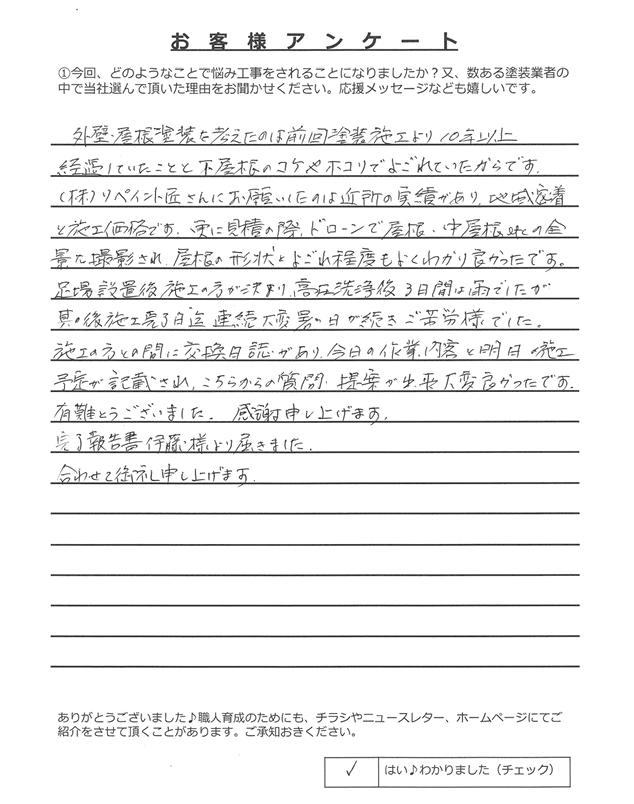 お客様アンケート
①今回、どのようなことで悩み工事をされることになりましたか？又、数ある塗装業者の
中で当社選んで頂いた理由をお聞かせください。応援メッセージなども嬉しいです。
外壁・屋根塗装を考えたのは前回塗装施工より10年以上
経過していたことと下屋根のコケやホコリでよごれていたからです。
(株)リペイント匠さんにお願いしたのは近所の実績があり、地域密着
と施工価格です。更に見積の際、ドローンで屋根・中屋根etcの全
景を撮影され、屋根の形状とよごれ程度もよくわかり良かったです。
足場設置後施工の方が決まり、高圧洗浄後3日間は雨でしたが
其の後施工完了日迄連続大変暑い日が続きご苦労様でした。
施工の方との間に交換日誌があり、今日の作業内容と明日の施工
予定が記載され、こちらからの質問・提案が出来大変良かったです。
有難とうございました。感謝申し上げます。
完了報告書伊藤様より届きました。
合わせて御礼申し上げます。
ありがとうございました♪職人育成のためにも、チラシやニュースレター、ホームページにてご
紹介をさせて頂くことがあります。ご承知おきください。
✓ はい♪わかりました（チェック）